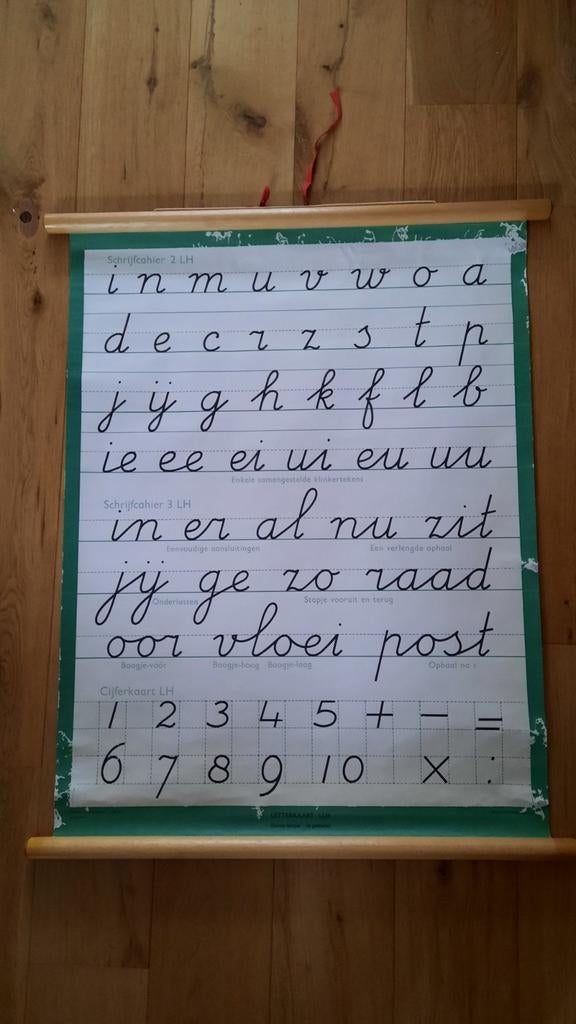 Schrijfcahier 2 LH
i n m u v w o a
d e c r z s t p
j ij g h k f l b
ie ee ei ui eu uu
Enkele samengestelde klinkertekens
Schrijfcahier 3 LH
in er al nu zit
Eenvoudige aansluitingen Een verlengde ophaal
jij ge zo raad
Onderlussen Stapje vooruit en terug
oor vloei post
Boogje-vóór Boogje-hoog Boogje-laag Ophaal na s
Cijferkaart LH
1 2 3 4 5 + − =
6 7 8 9 10 × :
LETTERKAART LLH